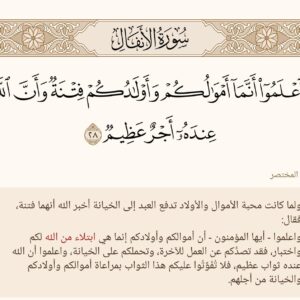 سُورَةُ الأَنفَال
عْلَمُوٓا۟ أَنَّمَآ أَمْوَٰلُكُمْ وَأَوْلَٰدُكُمْ فِتْنَةٌ وَأَنَّ ٱللَّ
عِندَهُۥٓ أَجْرٌ عَظِيمٌ ٢٨
المختصر
ولما كانت محبة الأموال والأولاد تدفع العبد إلى الخيانة أخبر الله أنهما فتنة،
فقال:
واعلموا - أيها المؤمنون - أن أموالكم وأولادكم إنما هي ابتلاء من الله لكم
واختبار، فقد تصدّكم عن العمل للآخرة، وتحملكم على الخيانة، واعلموا أن الله
عنده ثواب عظيم، فلا تُفَوِّتُوا عليكم هذا الثواب بمراعاة أموالكم وأولادكم
والخيانة من أجلهم.